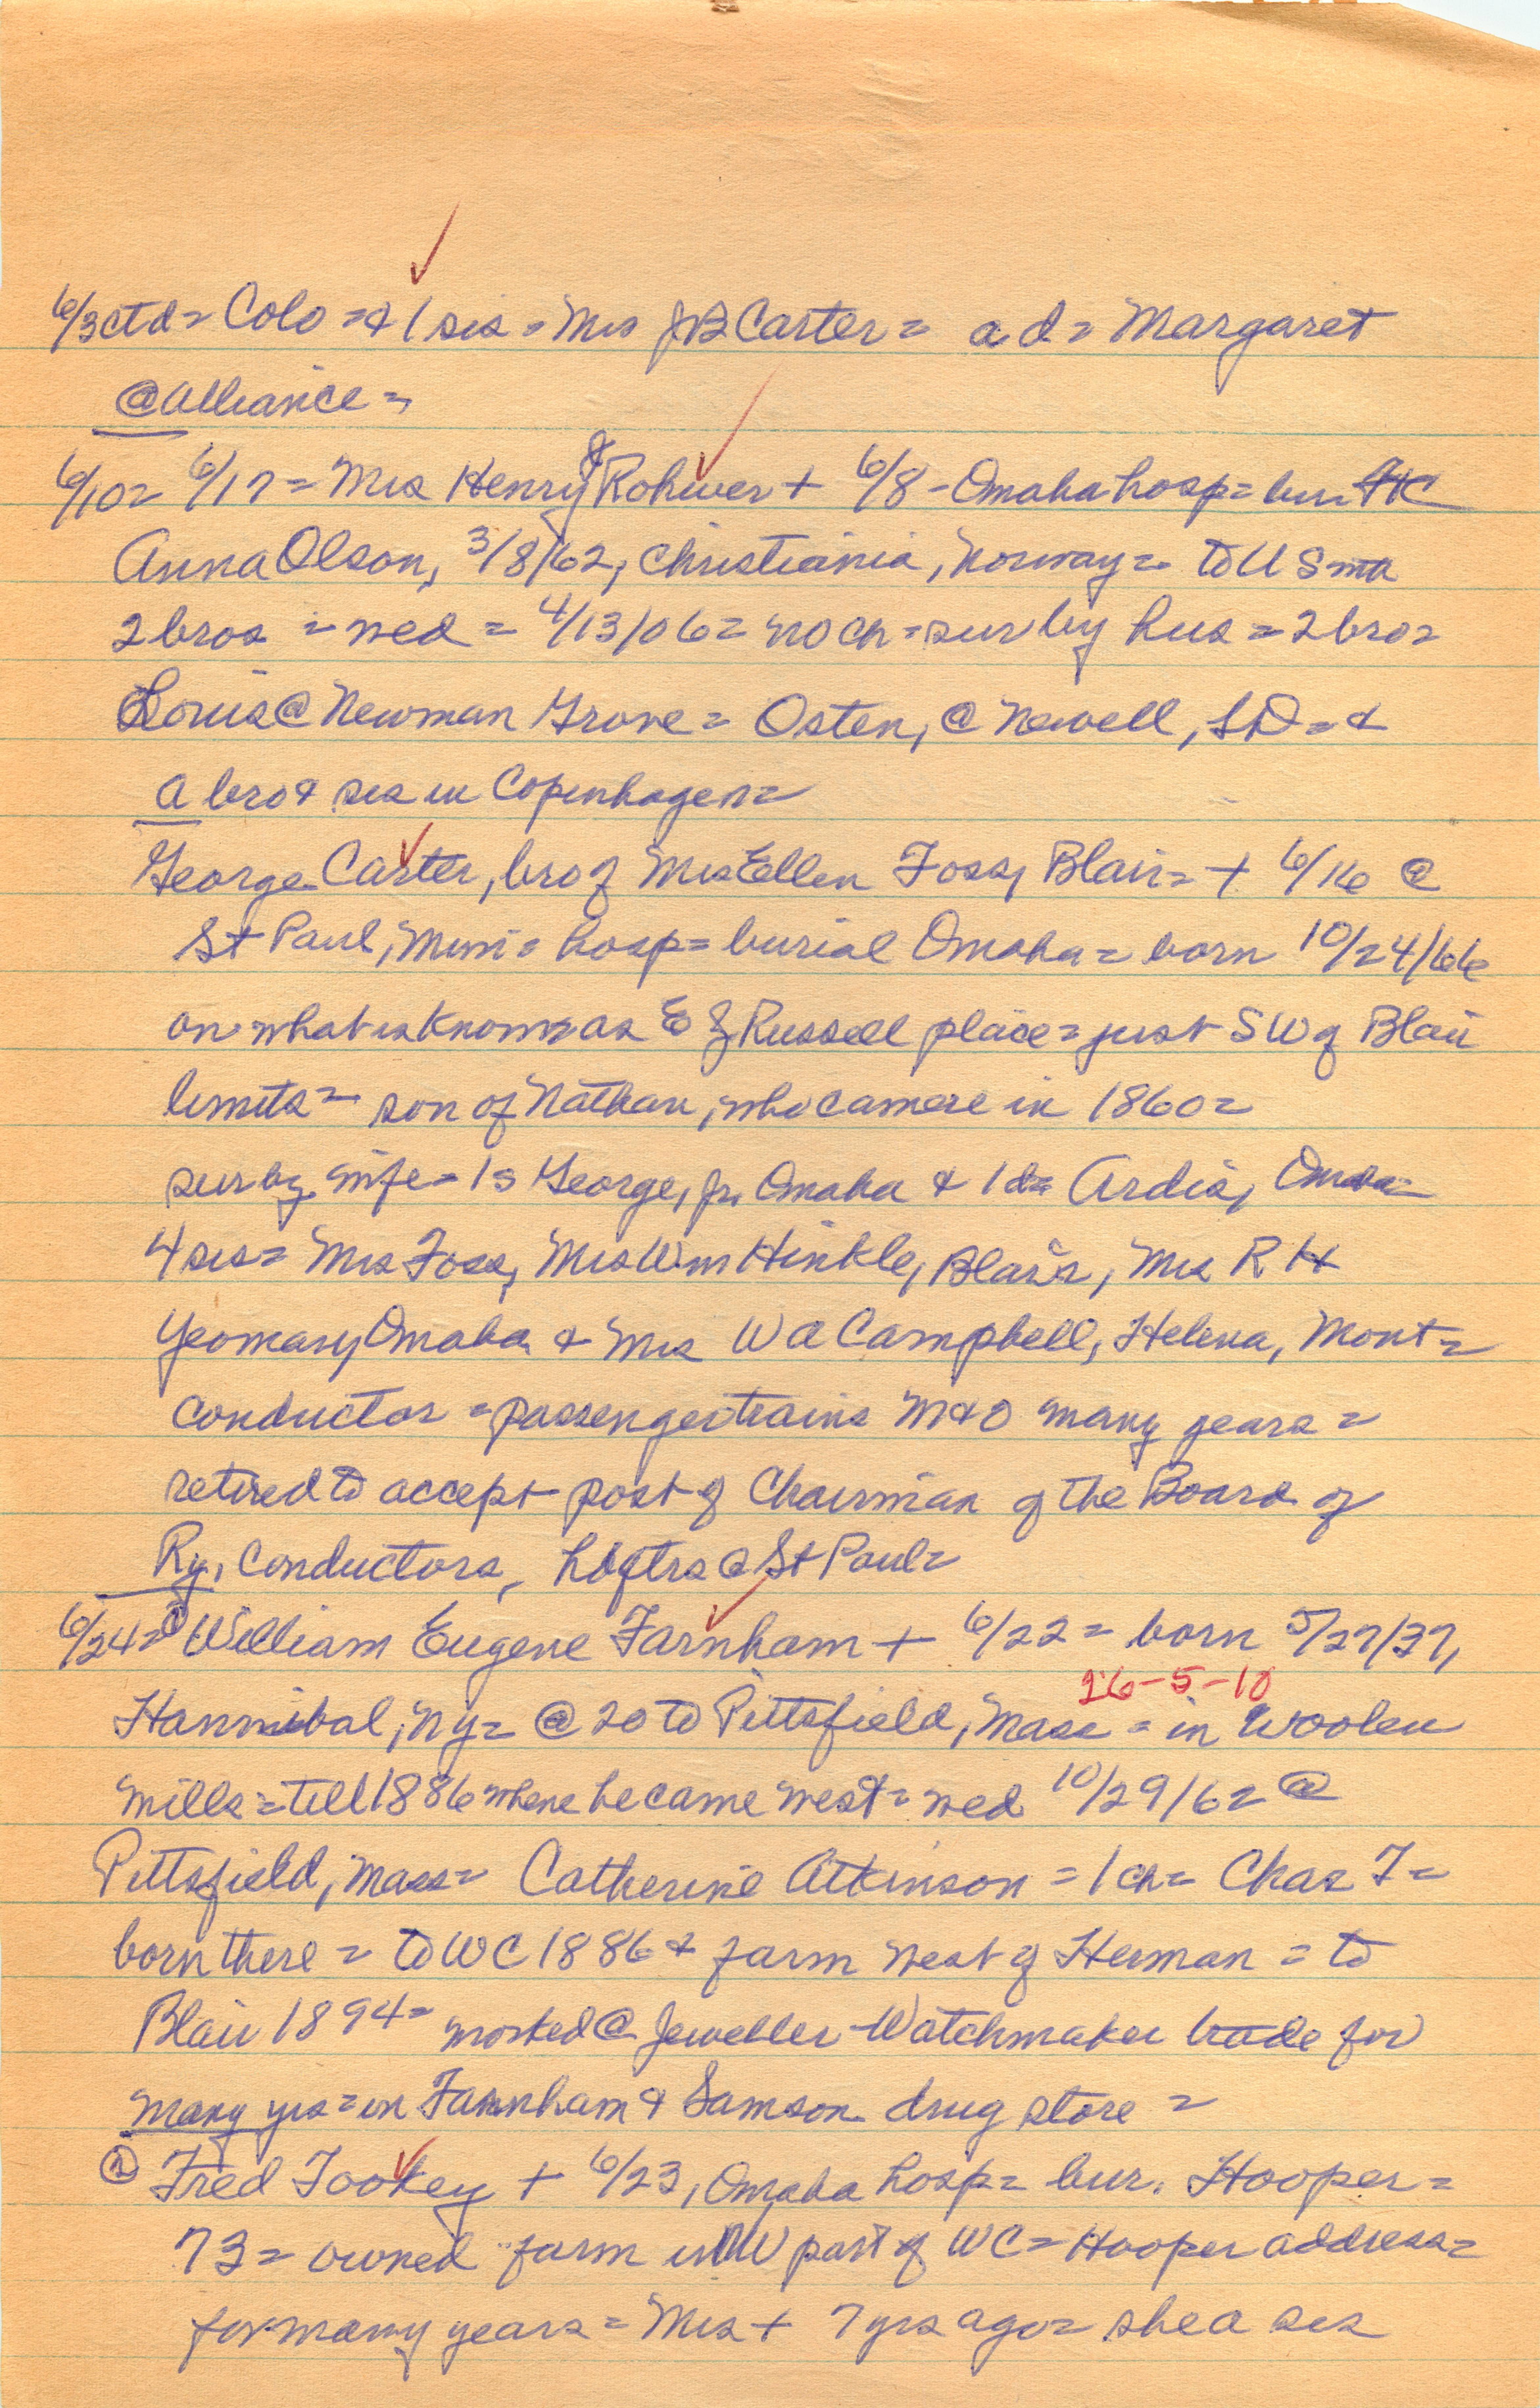 6/3 ctd = Colo = & 1 sis = Mrs JB Carter = a d = Margaret
@ Alliance =
6/10 = 6/17 = Mrs Henry J Rohwer + 6/8 - Omaha hosp = bur
Anna Olson, 3/8/62, Christiania, Norway = to U S
2 bros = wed = 4/13/06 = no ch = sur by hus = 2 bro =
Louis @ Newman Grove = Osten, @ Newell, SD = &
a bro & sis in Copenhagen =
George Carter, bro of Mrs Ellen Foss, Blair = + 6/16 @
St Paul, Minn = hosp = burial Omaha = born 10/24/66
on what is known as E J Russell place = just SW of Blair
limits = son of Nathan, who came here in 1860 =
sur by wife = 1 s George, Jr, Omaha & 1 d = Ardis, Omaha =
4 sis = Mrs Foss, Mrs Wm Hinkle, Blair, Mrs R H
Yeomany Omaha & Mrs W A Campbell, Helena, Mont =
conductor = passenger trains M & O many years =
retired to accept post of Chairman of the Board of
Ry. Conductors, hdqtrs @ St Paul =
6/24 = ① William Eugene Farnham + 6/22 = born 5/27/37,
26-5-10
Hannibal, NY = @ 20 to Pittsfield, Mass = in woolen
mills = till 1886 when he came west = wed 10/29/62 @
Pittsfield, Mass = Catherine Atkinson = 1 ch = Chas F =
born there = to WC 1886 & farm west of Herman = to
Blair 1894 = worked @ Jeweller - Watchmaker trade for
many yrs = in Farnham & Samson drug store =
② Fred Tookey + 6/23, Omaha hosp = bur. Hooper =
73 = owned farm in NW part of WC = Hooper address =
for many years = Mrs + 7 yrs ago = she a sis